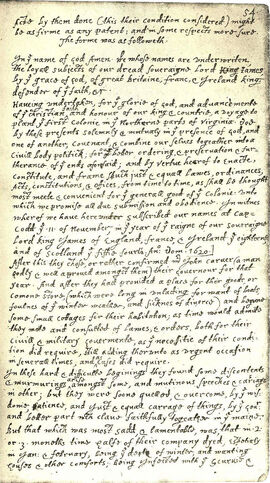 54
by them done (this their condition considered) might
be as firme as any patent; and in some respects more sure.
The forme was as followeth.
In yͤ name of god Amen. We whose names are underwriten,
the loyall subjects of our dread soveraigne Lord King James
by yͤ grace of god, of great Britaine, franc, & Ireland king,
defender of yͤ faith, &c
Haveing undertaken, for yͤ glorie of god, and advancemente
of yͤ christian faith and honour of our king & countrie, a voyage to
plant yͤ first colonie in yͤ Northerne parts of Virginia. Doe
by these presents solemnly & mutualy in yͤ presence of god, and
one of another, covenant, & combine our selves togeather into a
civill body politick; for our better ordering, & preservation & fur-
therance of yͤ ends aforesaid; and by vertue hearof to enacte,
constitute, and frame such just & equall lawes, ordinances,
Acts, constitutions, & offices, from time to time, as shall be thought
most meete & convenient for yͤ generall good of yͤ colonie: unto
which we promise all due submission and obedience. In witnes
wherof we have hereunder subscribed our names at Cap-
Codd yͤ ·11· of November, in yͤ year of yͤ raigne of our soveraigne
Lord king James of England, france, & Ireland yͤ eighteenth
and of Scotland yͤ fiftie fourth. An°: Dom ·1620·|
After this they chose, or rather confirmed mr John Carver (a man
godly & well approved amongst them) their Governour for that
year. And after they had provided a place for their goods, or
comone store, (which were long in unlading for want of boats,
foulnes of yͤ winter weather, and sicknes of diverce) and begune
some small cottages for their habitation; as time would admitte
they mette and consulted of lawes, & orders, both for their
civill, & military govermente, as yͤ necessitie of their condi-
tion did require, still adding therunto as urgent occasion
in severall times, and as cases did require.
In these hard & difficulte beginings they found some discontents
& murmurings arise amongst some, and mutinous speeches & cariags
in other; but they were soone quelled, & overcome, by yͤ wis-
dome, patience, and just & equall carrage of things, by yͤ Govr
and better part wch clave faithfully togeather in yͤ maine.
But that which was most sadd, & lamentable, was, that in ·2·
or ·3· moneths time halfe of their company dyed, espetialy
in Jan: & february, being yͤ depth of winter, and wanting
houses & other comforts; being infected with yͤ scurvie &